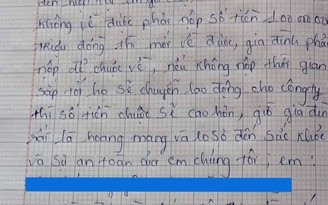 đến hiện
không về được phải nộp số tiền 100.000.000
triệu đồng thì mới về được, gia đình phải
nộp để chuộc về, nếu không nộp thời gian
sắp tới họ sẽ chuyển lao động cho công ty
thì số tiền chuộc sẽ cao hơn, giờ gia đìn
rất là hoang mang và lo số đến sức khỏe
và sử an toàn của em chúng tôi, em: